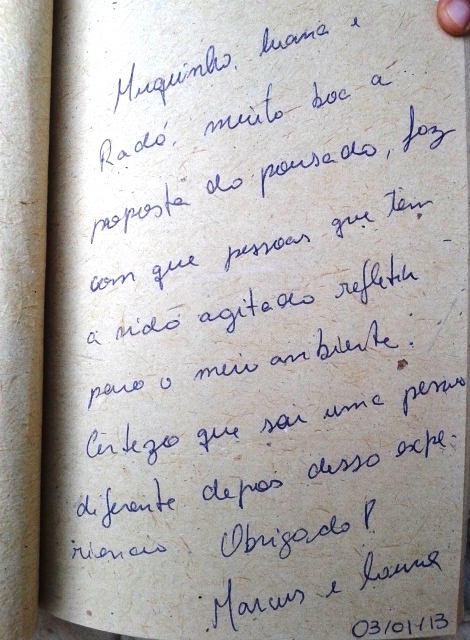 Muquinho, Luana e
Radó, muito boa a
proposta da pousada, faz
com que pessoas que têm
a vida agitada refletir
para o meio ambiente.
Certeza que sai uma pessoa
diferente depois dessa expe-
riencia Obrigado!
Marcus e
03/01/13